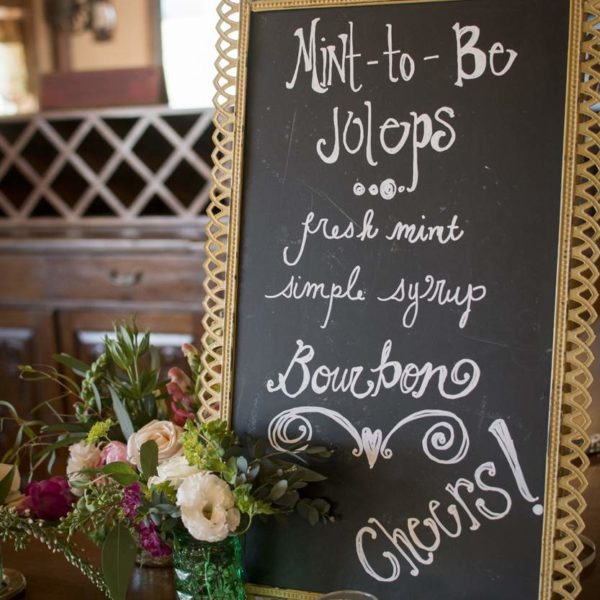 Mint-to-Be
Jolops
fresh mint
simple syrup
Bourbon
Cheers!